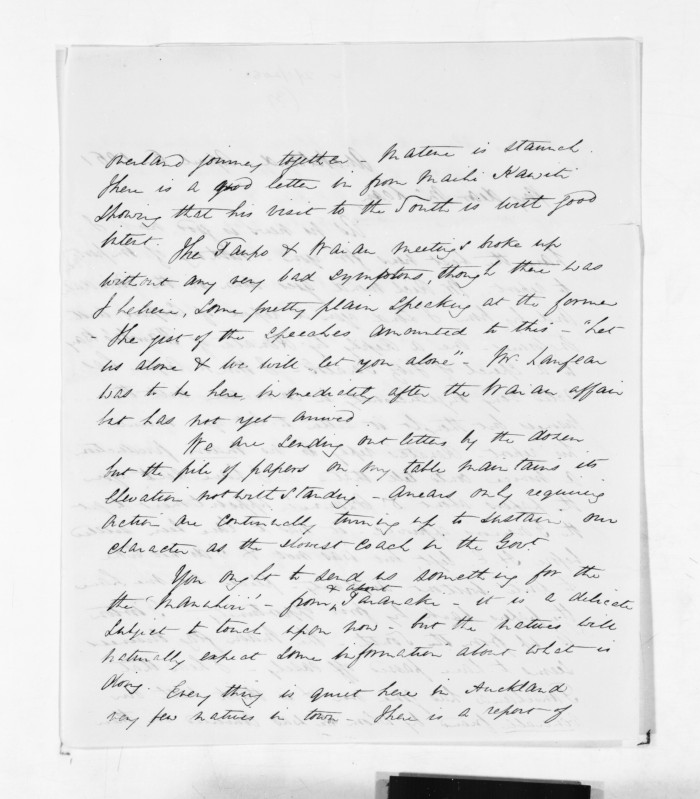 overland journey together - Matene is staunch.
There is a good letter in from Maihi Kawiti
showing that his visit to the South is with good
intent. The Taupo & Waiau meetings broke up
without any very bad symptoms, though there was
I believe, some pretty plain speaking at the former
- the gist of the speeches amounted to this - "Let
us alone & we will let you alone" - Mr. Lanfear
was to be here immediately after the Waiau affair
but has not yet arrived.
We are sending out letters by the dozen
but the pile of papers on my table maintains its
elevation notwithstanding - arrears only requiring
action are continually turning up to sustain our
character as the slowest coach in the Govt.
You ought to send us something for the
the 'Manuhiri' - from & about Taranaki - it is a delicate
subject to touch upon now - but the natives will
naturally expect some information about what is
doing. Everything is quiet here in Auckland
very few natives in town - There is a report of